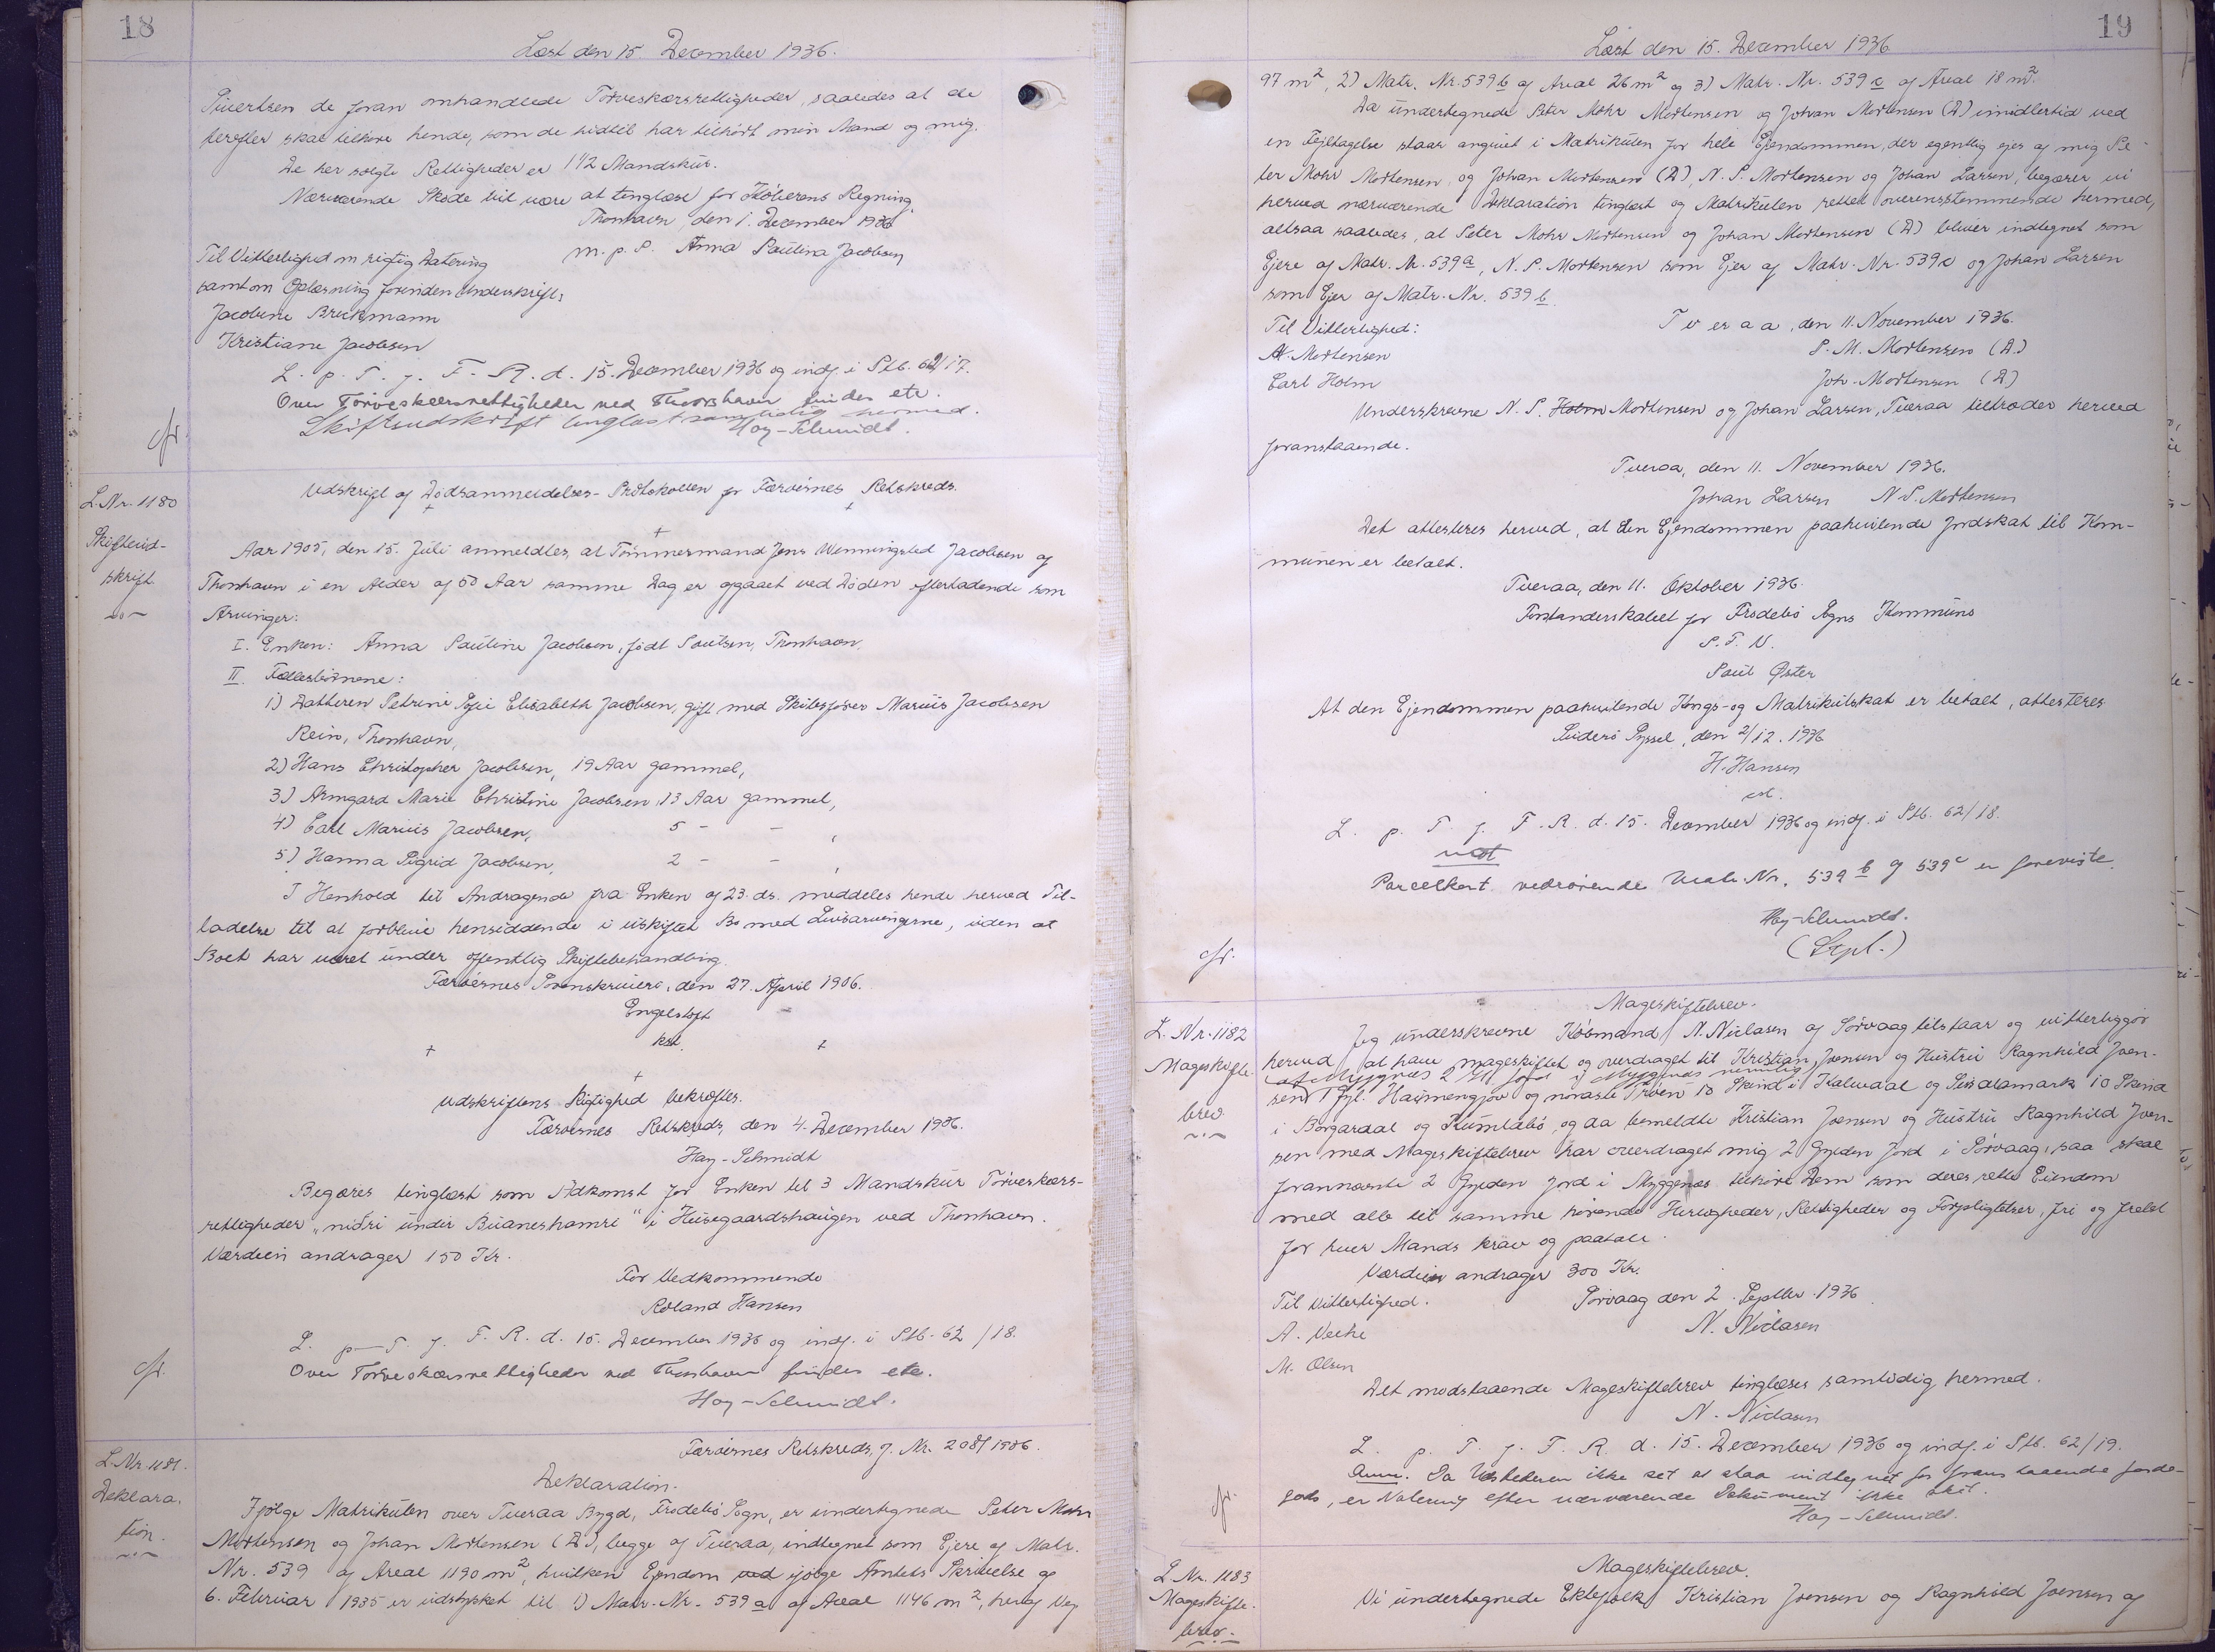 18
Læst den 15. December 1936.
Sivertsen de foran omhandlede Tørveskærsrettigheder, saaledes at de
herefter skal tilhøre hende, som de hidtil har tilhørt min Mand og mig.
De her solgte Rettigheder er 1 1/2 Mandskur.
Nærværende Skøde vil være at tinglæse for Køberens Regning.
Thorshavn, den 1. December 1936
Til Vitterlighed om rigtig Datering m. p. P. Anna Paulina Jacobsen
samt om Oplæsning forinden Underskrift:
Jacobine Breckmann
Kristiane Jacobsen
L. p. T. f. F. R. d. 15. December 1936 og indf. i Ptb. 62/17.
Over Tørveskærsrettigheder ved Thorshavn findes etc.
Skifteudskrift tinglæst samtidig hermed.
cfr. Hay-Schmidt.
L. Nr. 1180
Skifteud-
skrift
Udskrift af Dødsanmeldelses-Protokollen for Færøernes Retskreds.
Aar 1905, den 15. Juli anmeldtes, at Tømmermand Jens Wenningsted Jacobsen af
Thorshavn i en Alder af 50 Aar samme Dag er afgaaet ved Døden efterladende som
Arvinger:
I. Enken: Anna Pauline Jacobsen, født Poulsen, Thorshavn.
II. Fællesbørnene:
1) Datteren Petrine Sofie Elisabeth Jacobsen, gift med Skibsfører Marius Jacobsen
Rein, Thorshavn,
2) Hans Christopher Jacobsen, 19 Aar gammel,
3) Armgard Marie Christine Jacobsen, 13 Aar gammel,
4) Carl Marius Jacobsen, 5 - - ,
5) Hanna Sigrid Jacobsen, 2 - - ,
I Henhold til Andragende fra Enken af 23. ds. meddeles hende herved Til-
ladelse til at forblive hensiddende i uskiftet Bo med Livsarvingerne, uden at
Boet har været under offentlig Skiftebehandling.
Færøernes Sorenskriveri, den 27. April 1906.
Engelstoft
kst.
Udskriftens Rigtighed bekræftes.
Færøernes Retskreds, den 4. December 1936.
Hay-Schmidt
Begæres tinglæst som Adkomst for Enken til 3 Mandskur Tørveskærs-
rettigheder "niðri undir Buaneshamri" i Husegaardshaugen ved Thorshavn.
Værdien andrager 150 Kr.
For Vedkommende
Roland Hansen
L. p. T. f. F. R. d. 15. December 1936 og indf. i Ptb. 62/18.
Over Tørveskærsrettigheder ved Thorshavn findes etc.
cfr. Hay-Schmidt.
L. Nr. 1181.
Deklara-
tion.
Færøernes Retskreds, J. Nr. 208/1936.
Deklaration.
Ifølge Matrikulen over Tveraa Bygd, Frodebø Sogn, er undertegnede Peter Mohr
Mortensen og Johan Mortensen (D), begge af Tveraa, indtegnet som Ejere af Matr.
Nr. 539 af Areal 1190 m², hvilken Ejendom ved ifølge Amtets Skrivelse af
6. Februar 1935 er udstykket til 1) Matr. Nr. 539 a af Areal 1146 m², heraf Vej
19
Læst den 15. December 1936
97 m², 2) Matr. Nr. 539 b af Areal 26 m² og 3) Matr. Nr. 539 c af Areal 18 m².
Da undertegnede Peter Mohr Mortensen og Johan Mortensen (D) imidlertid ved
en Fejltagelse staar angivet i Matrikulen for hele Ejendommen, der egentlig ejes af mig Pe-
ter Mohr Mortensen, og Johan Mortensen (D), N. P. Mortensen og Johan Larsen, begærer vi
herved nærværende Deklaration tinglæst og Matrikulen rettet overensstemmende hermed,
altsaa saaledes, at Peter Mohr Mortensen og Johan Mortensen (D) bliver indtegnet som
Ejere af Matr. Nr. 539 a, N. P. Mortensen som Ejer af Matr. Nr. 539 c og Johan Larsen
som Ejer af Matr. Nr. 539 b.
Til Vitterlighed: Tveraa, den 11. November 1936.
M. Mortensen P. M. Mortensen (D.)
Carl Holm Joh. Mortensen (D)
Underskrevne N. P. Holm Mortensen og Johan Larsen, Tveraa tiltræder herved
foranstaaende.
Tveraa, den 11. November 1936.
Johan Larsen N P. Mortensen
Det attesteres herved, at den Ejendommen paahvilende Jordskat til Kom-
munen er betalt.
Tveraa, den 11. Oktober 1936.
Forstanderskabet for Frodebø Sogns Kommune
P. F. V.
Poul Øster
At den Ejendommen paahvilende Kongs- og Matrikulskat er betalt, attesteres
Suderø Syssel, den 2/12. 1936
H. Hansen
cst.
L. p. T. f. F. R. d. 15. December 1936 og indf. i Ptb. 62/18.
Parcelkort vedrørende Matr. Nr. 539 b og 539 c er foreviste.
Hay-Schmidt.
cfr. (Stpl.)
L. Nr. 1182
Mageskifte-
brev
Mageskiftebrev.
Jeg underskrevne Købmand N. Niclasen af Sørvaag tilstaar og vitterliggør
herved, at have mageskiftet og overdraget til Kristian Joensen og Hustru Ragnhild Joen-
af Myggenæs 2 Gl. Jord i Myggenæs nemlig
sen 1 Gyl. Heimangjov og norasta Trøen 10 Skind i Kalvadal og Suðalamark 10 Skind
i Borgardal og og da bemeldte Kristian Joensen og Hustru Ragnhild Joen-
sen med Mageskiftebrev har overdraget mig 2 Gylden Jord i Sørvaag, saa skal
forannævnte 2 Gylden Jord i Myggenæs tilhøre Dem som deres rette Eiendom
med alle til samme hørende Herligheder, Rettigheder og Forpligtelser, fri og frelst
for hver Mands krav og paatale.
Værdien andrager 300 Kr.
Til Vitterlighed. Sørvaag den 2. Septbr. 1936
A. N. Niclasen
M. Olsen
Det modstaaende Mageskiftebrev tinglæses samtidig hermed.
N. Niclasen
L. p. T. f. F. R. d. 15. December 1936 og indf. i Ptb. 62/19.
Anm. Da Udstederen ikke ses at staa indtegnet for foranstaaende Jorde-
gods, er Notering efter nærværende Dokument ikke sket.
cfr. Hay-Schmidt.
L. Nr. 1183
Mageskifte-
brev.
Mageskiftebrev.
Vi undertegnede Ektefolk Kristian Joensen og Ragnhild Joensen af